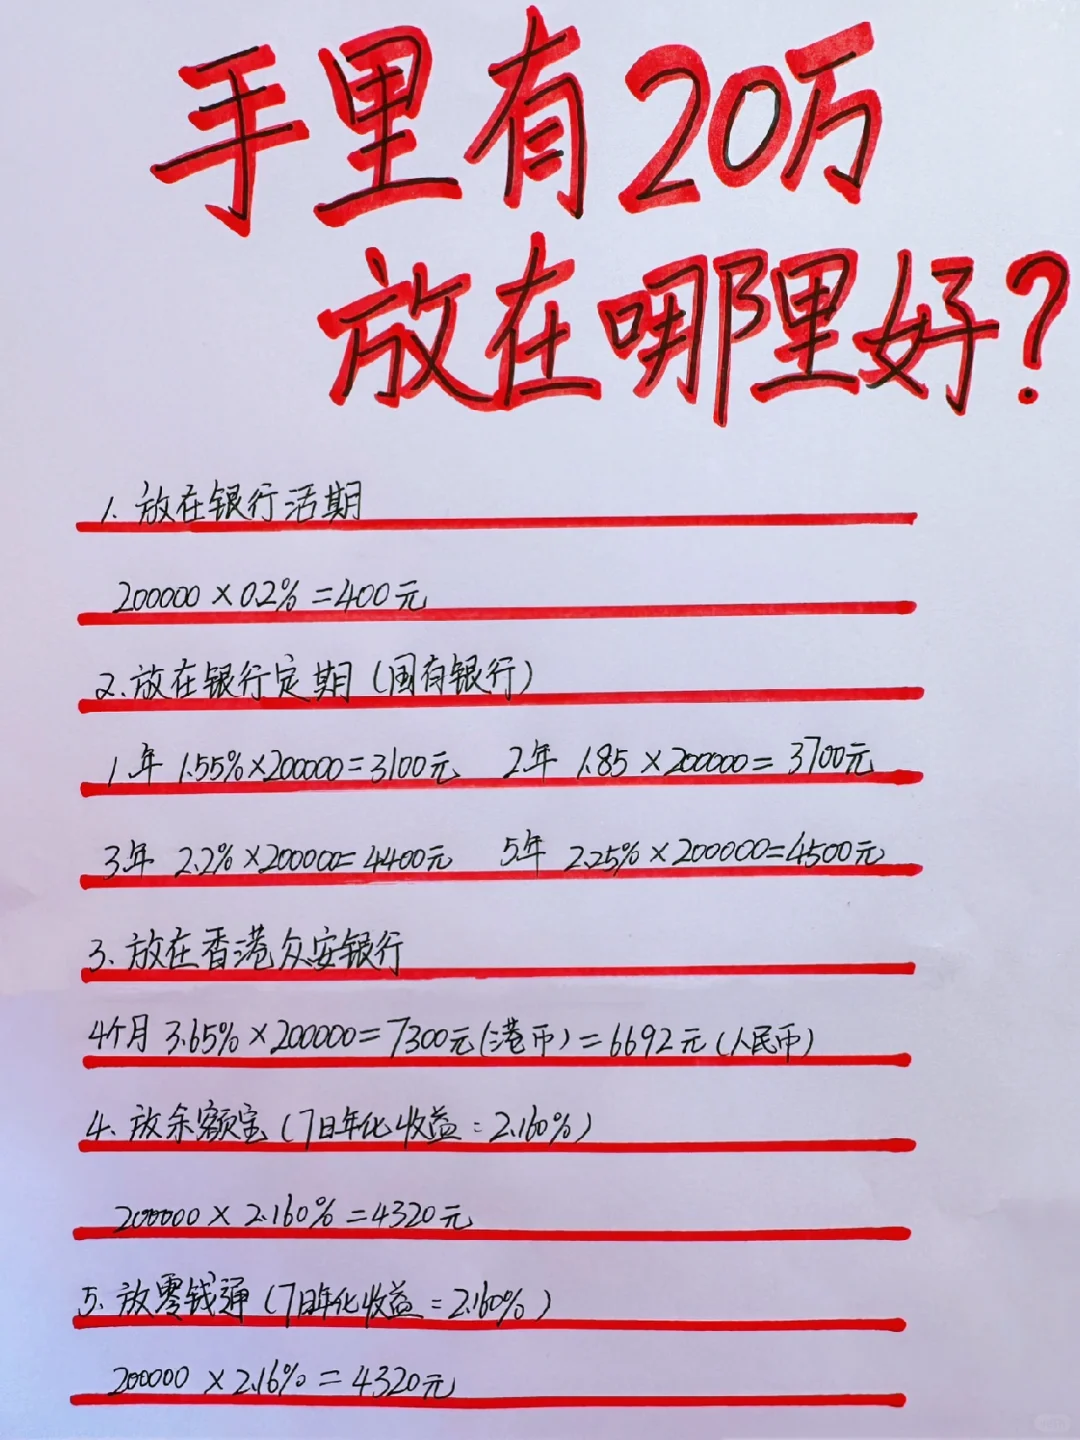 手里有20万
放在哪里好?
1. 放在银行活期
200000×0.2%=400元
2. 放在银行定期(国有银行)
1年 1.55%×200000=3100元 2年 1.85×200000=3700元
3年 2.2%×200000=4400元 5年 2.25%×200000=4500元
3. 放在香港众安银行
4个月 3.65%×200000=7300元(港币)=6692元(人民币)
4. 放余额宝(7日年化收益:2.160%)
200000×2.160%=4320元
5. 放零钱通(7日年化收益=2.160%)
200000×2.16%=4320元